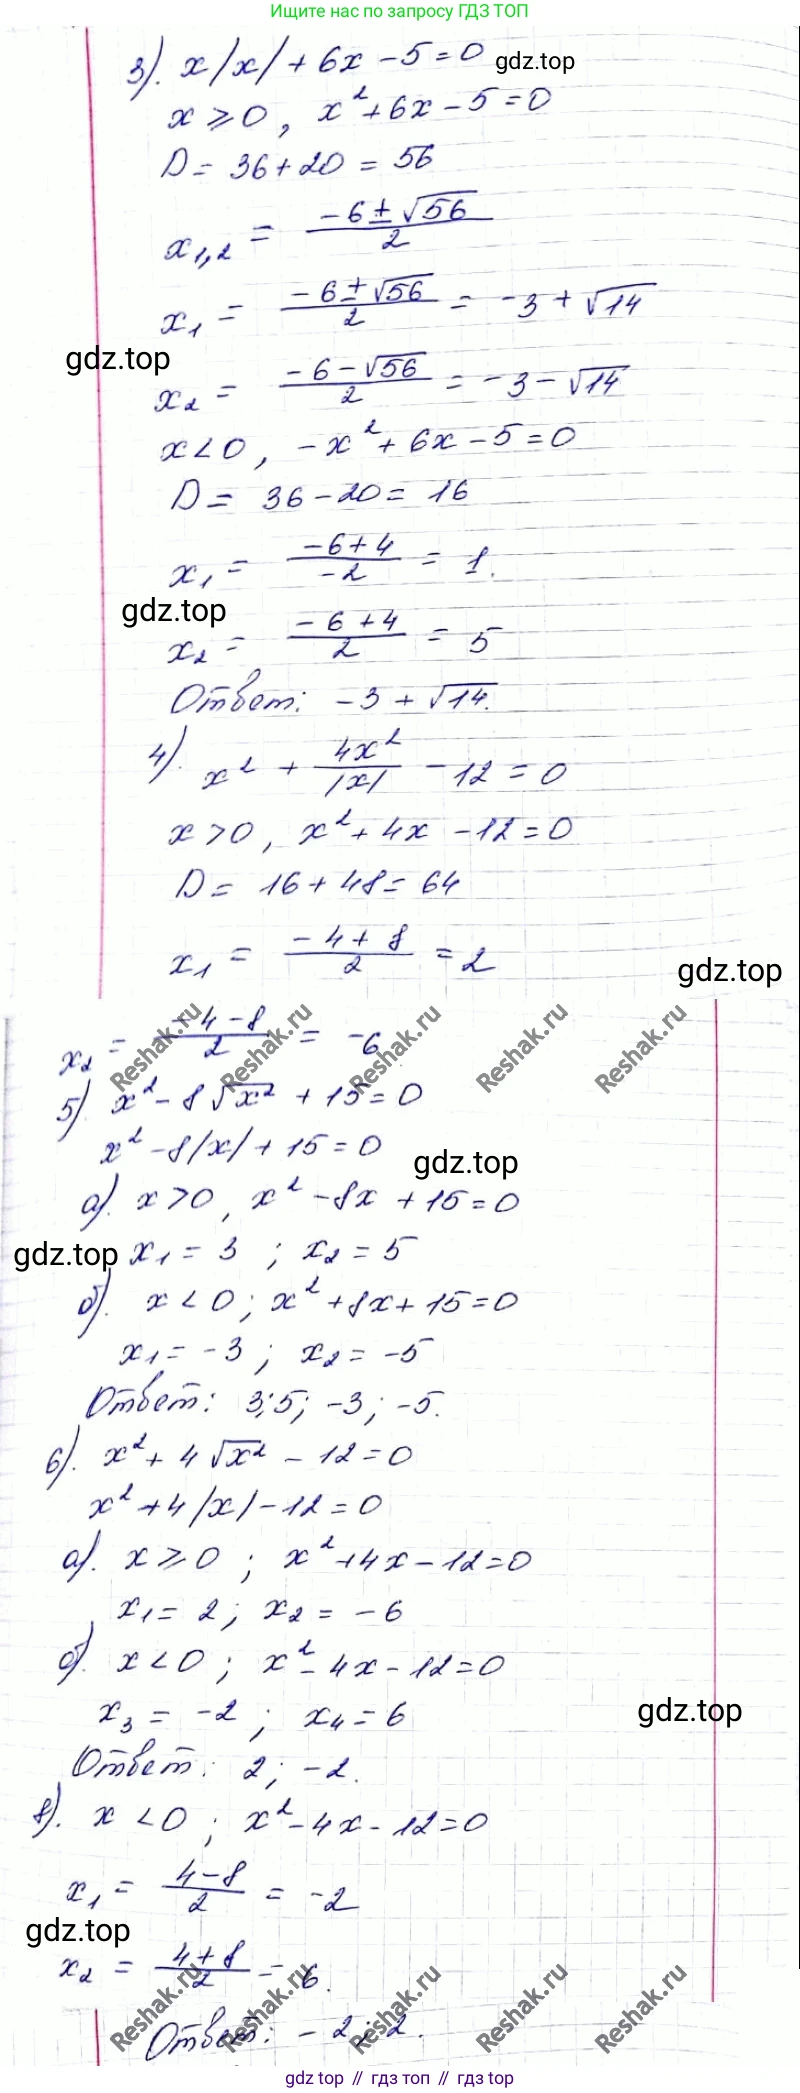 Ищите нас по запросу ГДЗ ТОП
3). x|x| + 6x - 5 = 0
gdz.top
x ⩾ 0, x² + 6x - 5 = 0
D = 36 + 20 = 56
x₁,₂ = (-6 ± √56)/2
x₁ = (-6 ± √56)/2 = -3 + √14
gdz.top
x₂ = (-6 - √56)/2 = -3 - √14
x < 0, -x² + 6x - 5 = 0
D = 36 - 20 = 16
x₁ = (-6 + 4)/-2 = 1.
gdz.top
x₂ = (-6 + 4)/2 = 5
Ответ: -3 + √14.
4). x² + 4x²/|x| - 12 = 0
x > 0, x² + 4x - 12 = 0
D = 16 + 48 = 64
x₁ = (-4 + 8)/2 = 2
gdz.top
x₂ = (-4 - 8)/2 = -6
Reshak.ru Reshak.ru Reshak.ru Reshak.ru Reshak.ru
5) x² - 8√x² + 15 = 0
x² - 8|x| + 15 = 0
gdz.top
а). x > 0, x² - 8x + 15 = 0
gdz.top
x₁ = 3 ; x₂ = 5
б). x < 0; x² + 8x + 15 = 0
x₁ = -3 ; x₂ = -5
Ответ: 3; 5; -3; -5.
6). x² + 4√x² - 12 = 0
x² + 4|x| - 12 = 0
а). x ⩾ 0 ; x² + 4x - 12 = 0
x₁ = 2; x₂ = -6
б). x < 0; x² - 4x - 12 = 0
x₃ = -2 ; x₄ = 6
gdz.top
Ответ: 2; -2.
8). x < 0 ; x² - 4x - 12 = 0
x₁ = (4 - 8)/2 = -2
gdz.top
x₂ = (4 + 8)/2 = 6.
Reshak.ru Reshak.ru Reshak.ru Reshak.ru Reshak.ru
Ответ: -2; 2.
gdz top // гдз топ // гдз top